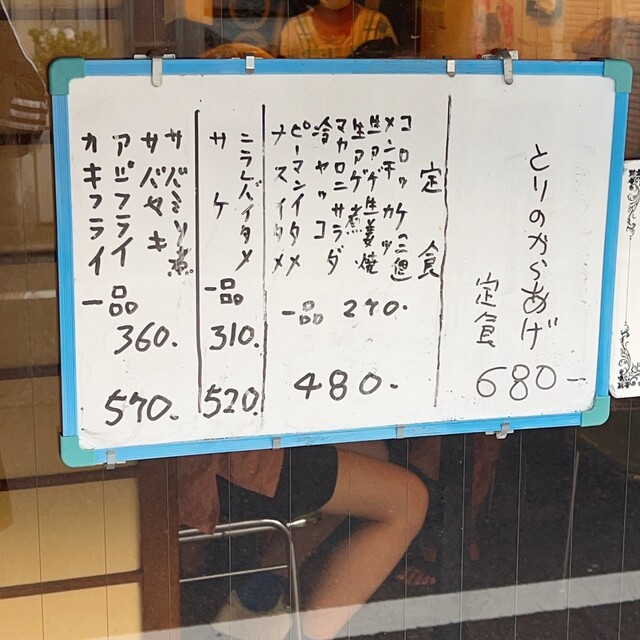 とりのからあげ
定食
680-
定食
コロッケ二個
メンチカツ
生アゲ生姜焼
生アゲ煮
マカロニサラダ
冷ヤッコ
ピーマンイタメ
ナスイタメ
一品 270.
480.
ニラレバイタメ
サケ
一品
310.
520.
サバミソ煮
サバヤキ
アジフライ
カキフライ
一品
360.
570.